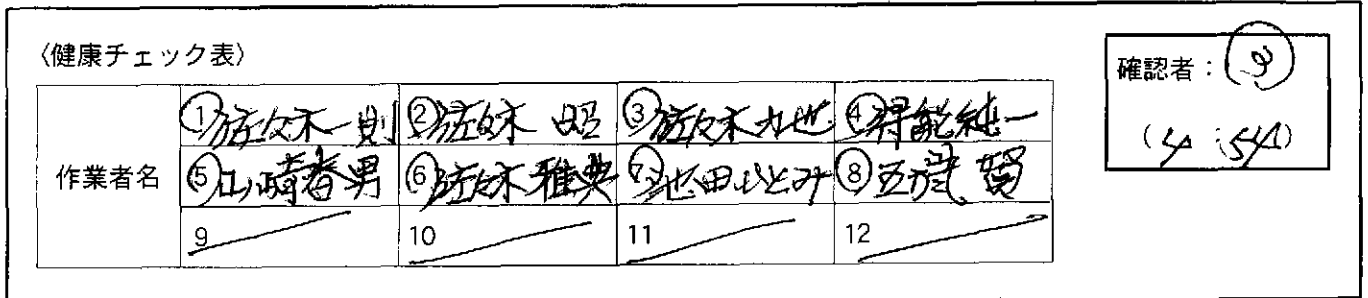 〈健康チェック表〉
確認者:
作業者名
①佐々木一則 ②佐々木 昭 ③佐々木 ④得能純一
⑤山崎春男 ⑥佐々木雅典 ⑦池田ひとみ ⑧五 賢
9 10 11 12